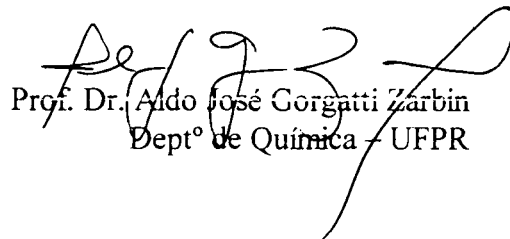 Prof. Dr. Aldo José Gorgatti Zarbin
Deptº de Química – UFPR